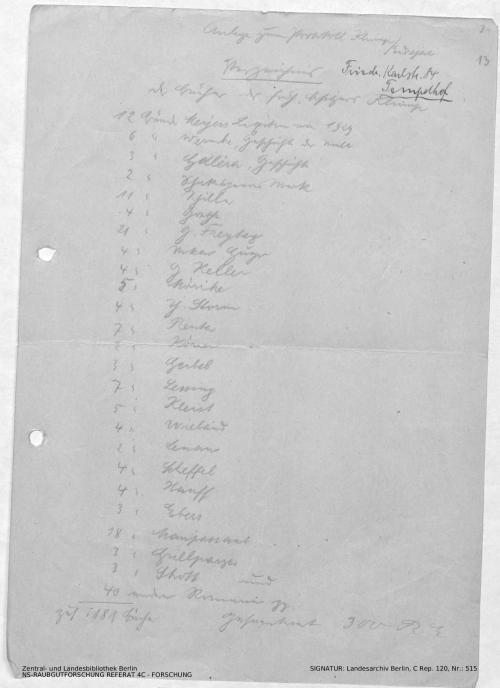 13
Anlage zum Protokoll
Verzeichnis Friedr. Karlstr. 84
Tempelhof
der Bücher
12 Bände Meyers Lexikon von 1909
6 " Geschichte der
3 " Geschichte
2 " Shakespeares Werke
11 " Schiller
4 "
21 " G. Freytag
4 " Victor Hugo
4 " G. Keller
5 " Mörike
4 " Th. Storm
7 " Reuter
Körner
3 " Geibel
7 " Lessing
5 " Kleist
4 " Wieland
2 " Lenau
4 " Scheffel
4 " Hauff
3 " Ebers
18 " Maupassant
3 " Grillparzer
3 " und
40 andere Romane
181 Bücher 300
Zentral- und Landesbibliothek Berlin
NS-RAUBGUTFORSCHUNG REFERAT 4C - FORSCHUNG
SIGNATUR: Landesarchiv Berlin, C Rep. 120, Nr.: 515